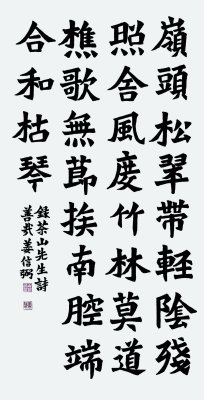 嶺頭松翠帶輕陰殘
照含風度竹林莫道
樵歌無節族南腔端
合和枯琴
錄茶山先生詩
善哉姜信弼